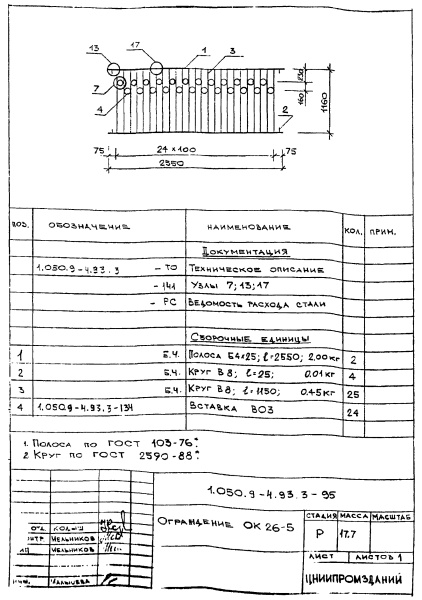 13
17
1
3
7
4
2
230
160
1160
75
24×100
75
2350
ПОЗ. ОБОЗНАЧЕНИЕ НАИМЕНОВАНИЕ КОЛ. ПРИМ.
ДОКУМЕНТАЦИЯ
1.050.9-4.93.3 -ТО ТЕХНИЧЕСКОЕ ОПИСАНИЕ
-141 УЗЛЫ 7; 13; 17
-РС ВЕДОМОСТЬ РАСХОДА СТАЛИ
СБОРОЧНЫЕ ЕДИНИЦЫ
1 Б.Ч. ПОЛОСА Б4×25; ℓ=2550; 2.00 кг 2
2 Б.Ч. КРУГ В8; ℓ=25; 0.01 кг 4
3 Б.Ч. КРУГ В8; ℓ=1150; 0.45 кг 25
4 1.050.9-4.93.3-134 ВСТАВКА ВО3 24
1. ПОЛОСА ПО ГОСТ 103-76*.
2 КРУГ ПО ГОСТ 2590-88*.
1.050.9-4.93.3-95
ОГРАЖДЕНИЕ ОК 26-5
СТАДИЯ МАССА МАСШТАБ
Р 17.7
ЛИСТ ЛИСТОВ 1
ЦНИИПРОМЗДАНИЙ
МЕЛЬНИКОВ
МЕЛЬНИКОВ